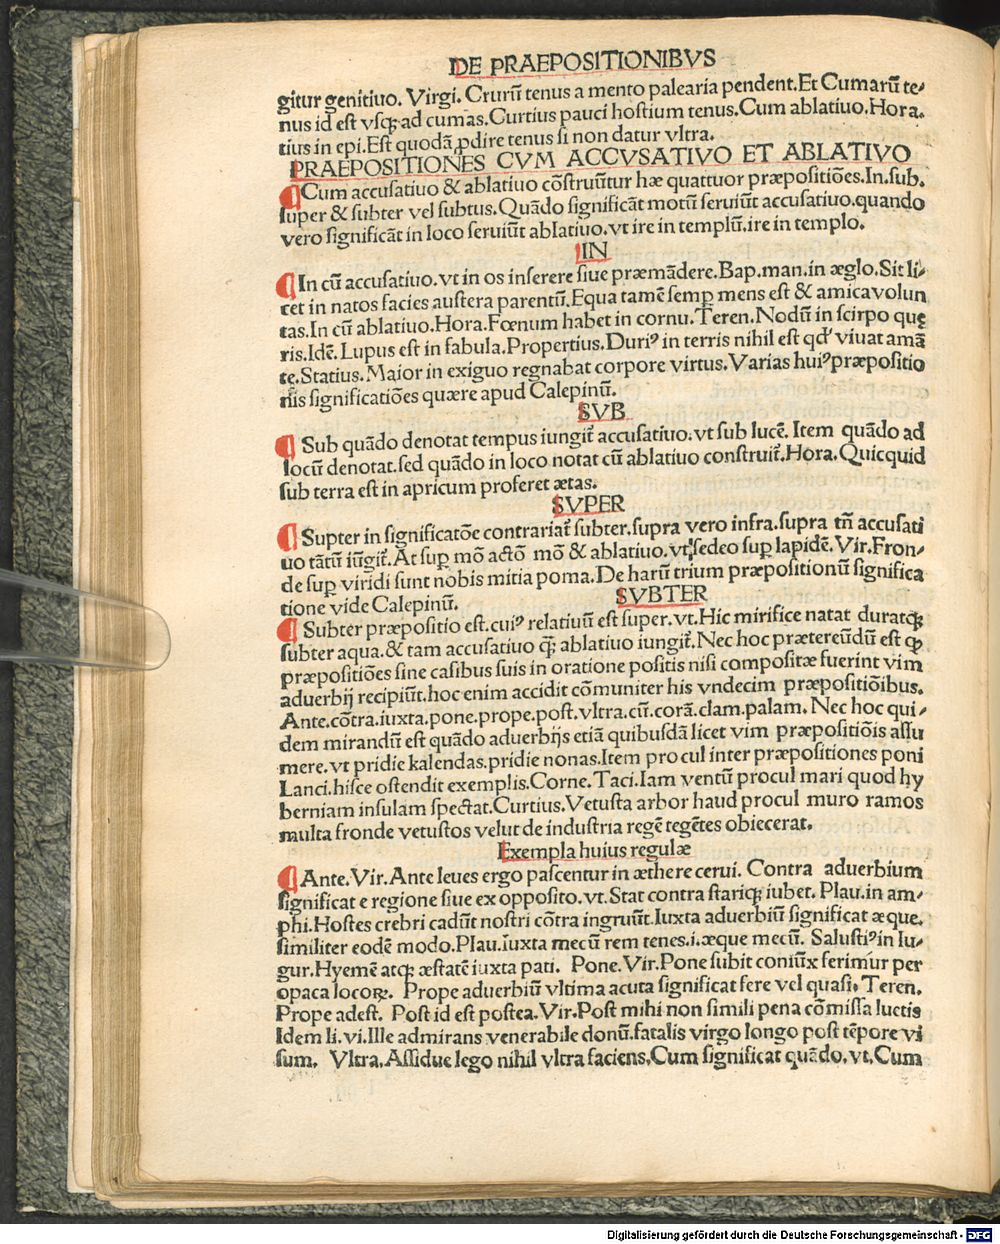 DE PRAEPOSITIONIBVS
gitur genitiuo. Virgi. Crurū tenus a mento palearia pendent. Et Cumarū te/
nus id est vsqꝫ ad cumas. Curtius pauci hostium tenus. Cum ablatiuo. Hora.
tius in epi. Est quodā ꝓdire tenus si non datur vltra.
PRAEPOSITIONES CVM ACCVSATIVO ET ABLATIVO
Cum accusatiuo & ablatiuo cōstruūtur hæ quattuor præpositiōes. In. sub.
super & subter vel subtus. Quādo significāt motū seruiūt accusatiuo. quando
vero significāt in loco seruiūt ablatiuo. vt ire in templū. ire in templo.
IN
In cū accusatiuo. vt in os inserere siue præmādere. Bap. man. in æglo. Sit li/
cet in natos facies austera parentū. Equa tamē semꝑ mens est & amica volun
tas. In cū ablatiuo. Hora. Fœnum habet in cornu. Teren. Nodū in scirpo quę
ris. Idē. Lupus est in fabula. Propertius. Duriꝰ in terris nihil est qd' viuat amā
te. Statius. Maior in exiguo regnabat corpore virtus. Varias huiꝰ præpositio
nis significatiōes quære apud Calepinū.
SVB
Sub quādo denotat tempus iungit̄ accusatiuo. vt sub lucē. Item quādo ad
locū denotat. sed quādo in loco notat cū ablatiuo construit̄. Hora. Quicquid
sub terra est in apricum proferet ætas.
SVPER
Supter in significatōe contrariat̄ subter. supra vero infra. supra tn̄ accusati
uo tātū iūgit̄. At suꝑ mō actō mō & ablatiuo. vt sedeo suꝑ lapidē. Vir. Fron/
de suꝑ viridi sunt nobis mitia poma. De harū trium præpositionū significa
tione vide Calepinū.
SVBTER
Subter præpositio est. cuiꝰ relatiuū est super. vt. Hic mirifice natat duratqꝫ
subter aqua. & tam accusatiuo qꝫ ablatiuo iungit̄. Nec hoc prætereūdū est ꝙ
præpositiōes sine casibus suis in oratione positis nisi compositæ fuerint vim
aduerbij recipiūt. hoc enim accidit cōmuniter his vndecim præpositiōibus.
Ante. cōtra. iuxta. pone. prope. post. vltra. cū. corā. clam. palam. Nec hoc qui/
dem mirandū est quādo aduerbijs etiā quibusdā licet vim præpositiōis assu
mere. vt pridie kalendas. pridie nonas. Item procul inter præpositiones poni
Lanci. hisce ostendit exemplis. Corne. Taci. Iam ventū procul mari quod hy
berniam insulam spectat. Curtius. Vetusta arbor haud procul muro ramos
multa fronde vetustos velut de industria regē tegētes obiecerat.
Exempla huius regulæ
Ante. Vir. Ante leues ergo pascentur in æthere cerui. Contra aduerbium
significat e regione siue ex opposito. vt. Stat contra stariqꝫ iubet. Plau. in am/
phi. Hostes crebri cadūt nostri cōtra ingruūt. Iuxta aduerbiū significat æque.
similiter eodē modo. Plau. iuxta mecū rem tenes. i. æque mecū. Salustiꝰ in Iu/
gur. Hyemē atqꝫ æstatē iuxta pati. Pone. Vir. Pone subit coniūx ferimur per
opaca locoꝝ. Prope aduerbiū vltima acuta significat fere vel quasi. Teren.
Prope adest. Post id est postea. Vir. Post mihi non simili pena cōmissa luetis
Idem li. vi. Ille admirans venerabile donū. fatalis virgo longo post tēpore vi
sum. Vltra. Assidue lego nihil vltra faciens. Cum significat quādo. vt. Cum
Digitalisierung gefördert durch die Deutsche Forschungsgemeinschaft - DFG